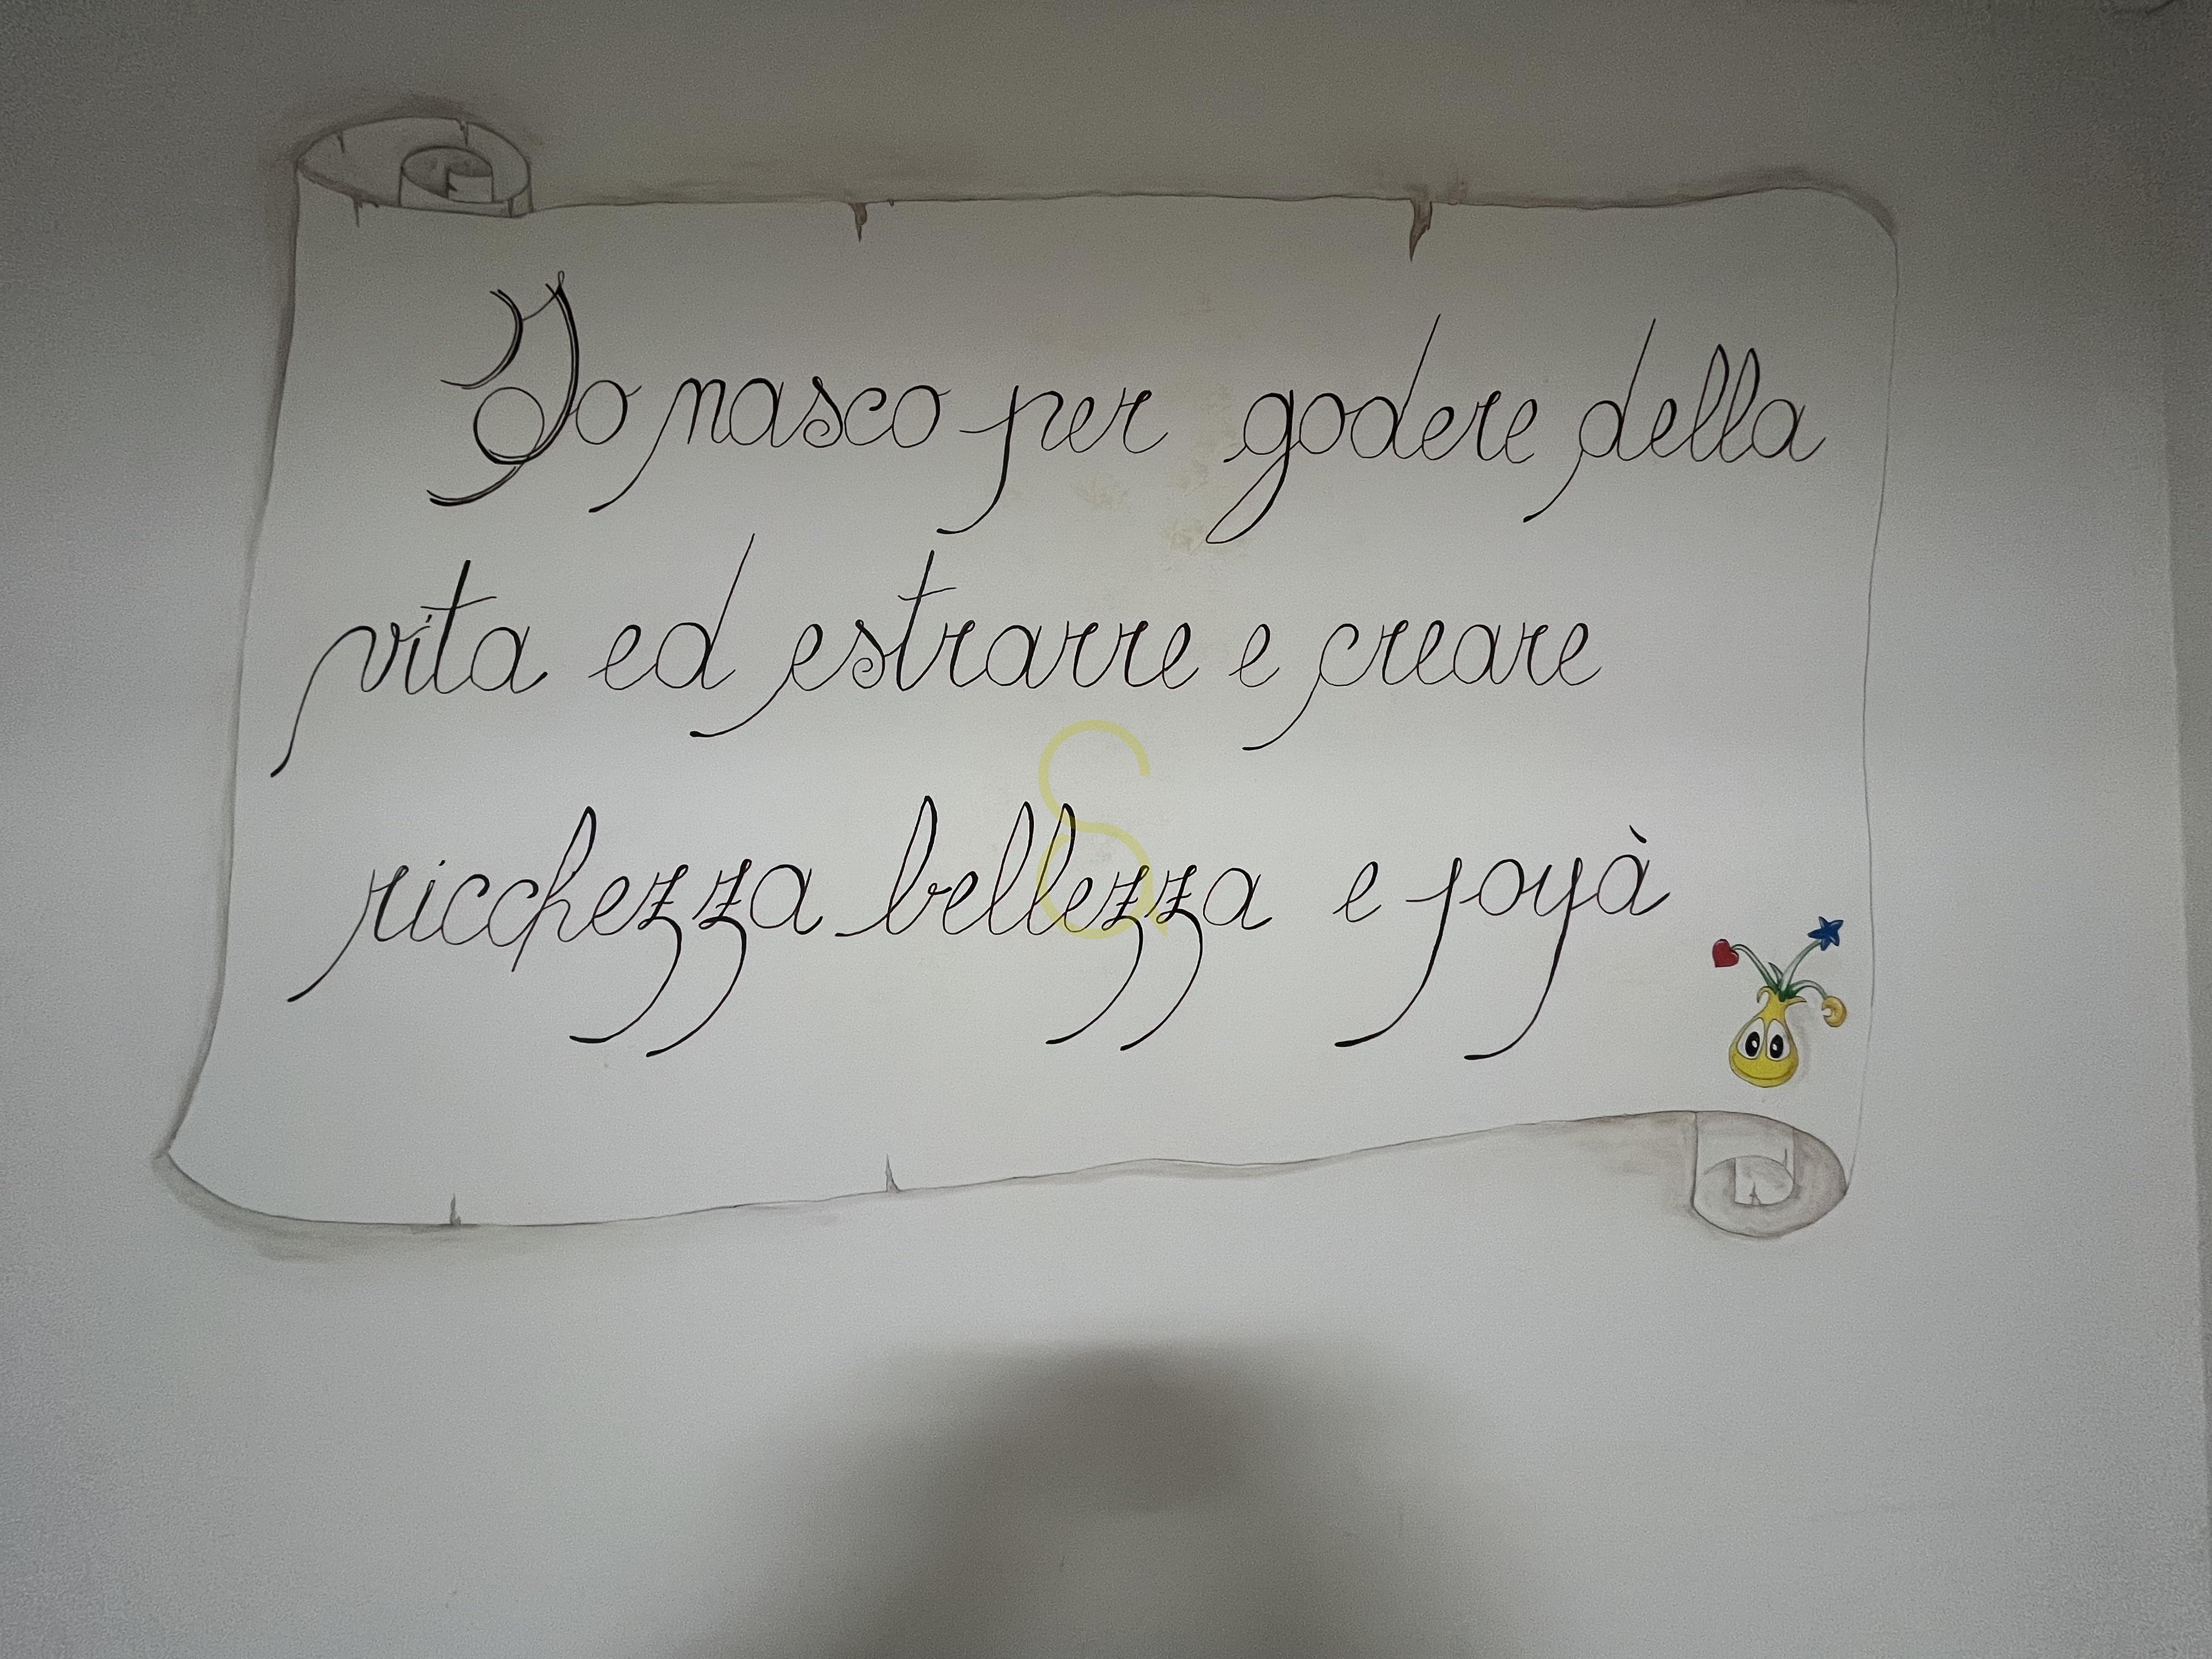 Io nasco per godere della
vita ed estrarre e creare
ricchezza bellezza e joyà